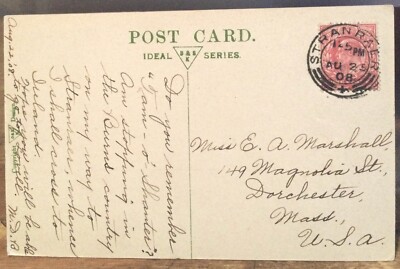 POST CARD.
IDEAL SERIES.
STRANRAER
PM
AU 23
08
Aug. 22, '08.
Do you remember
"Tam o' Shanter"?
Am stopping in
the Burns country
on my way to
Stranraer, whence
I shall cross to
Ireland.
Hope you will be able
to go
Miss E. A. Marshall,
149 Magnolia St.,
Dorchester,
Mass.,
U.S.A.